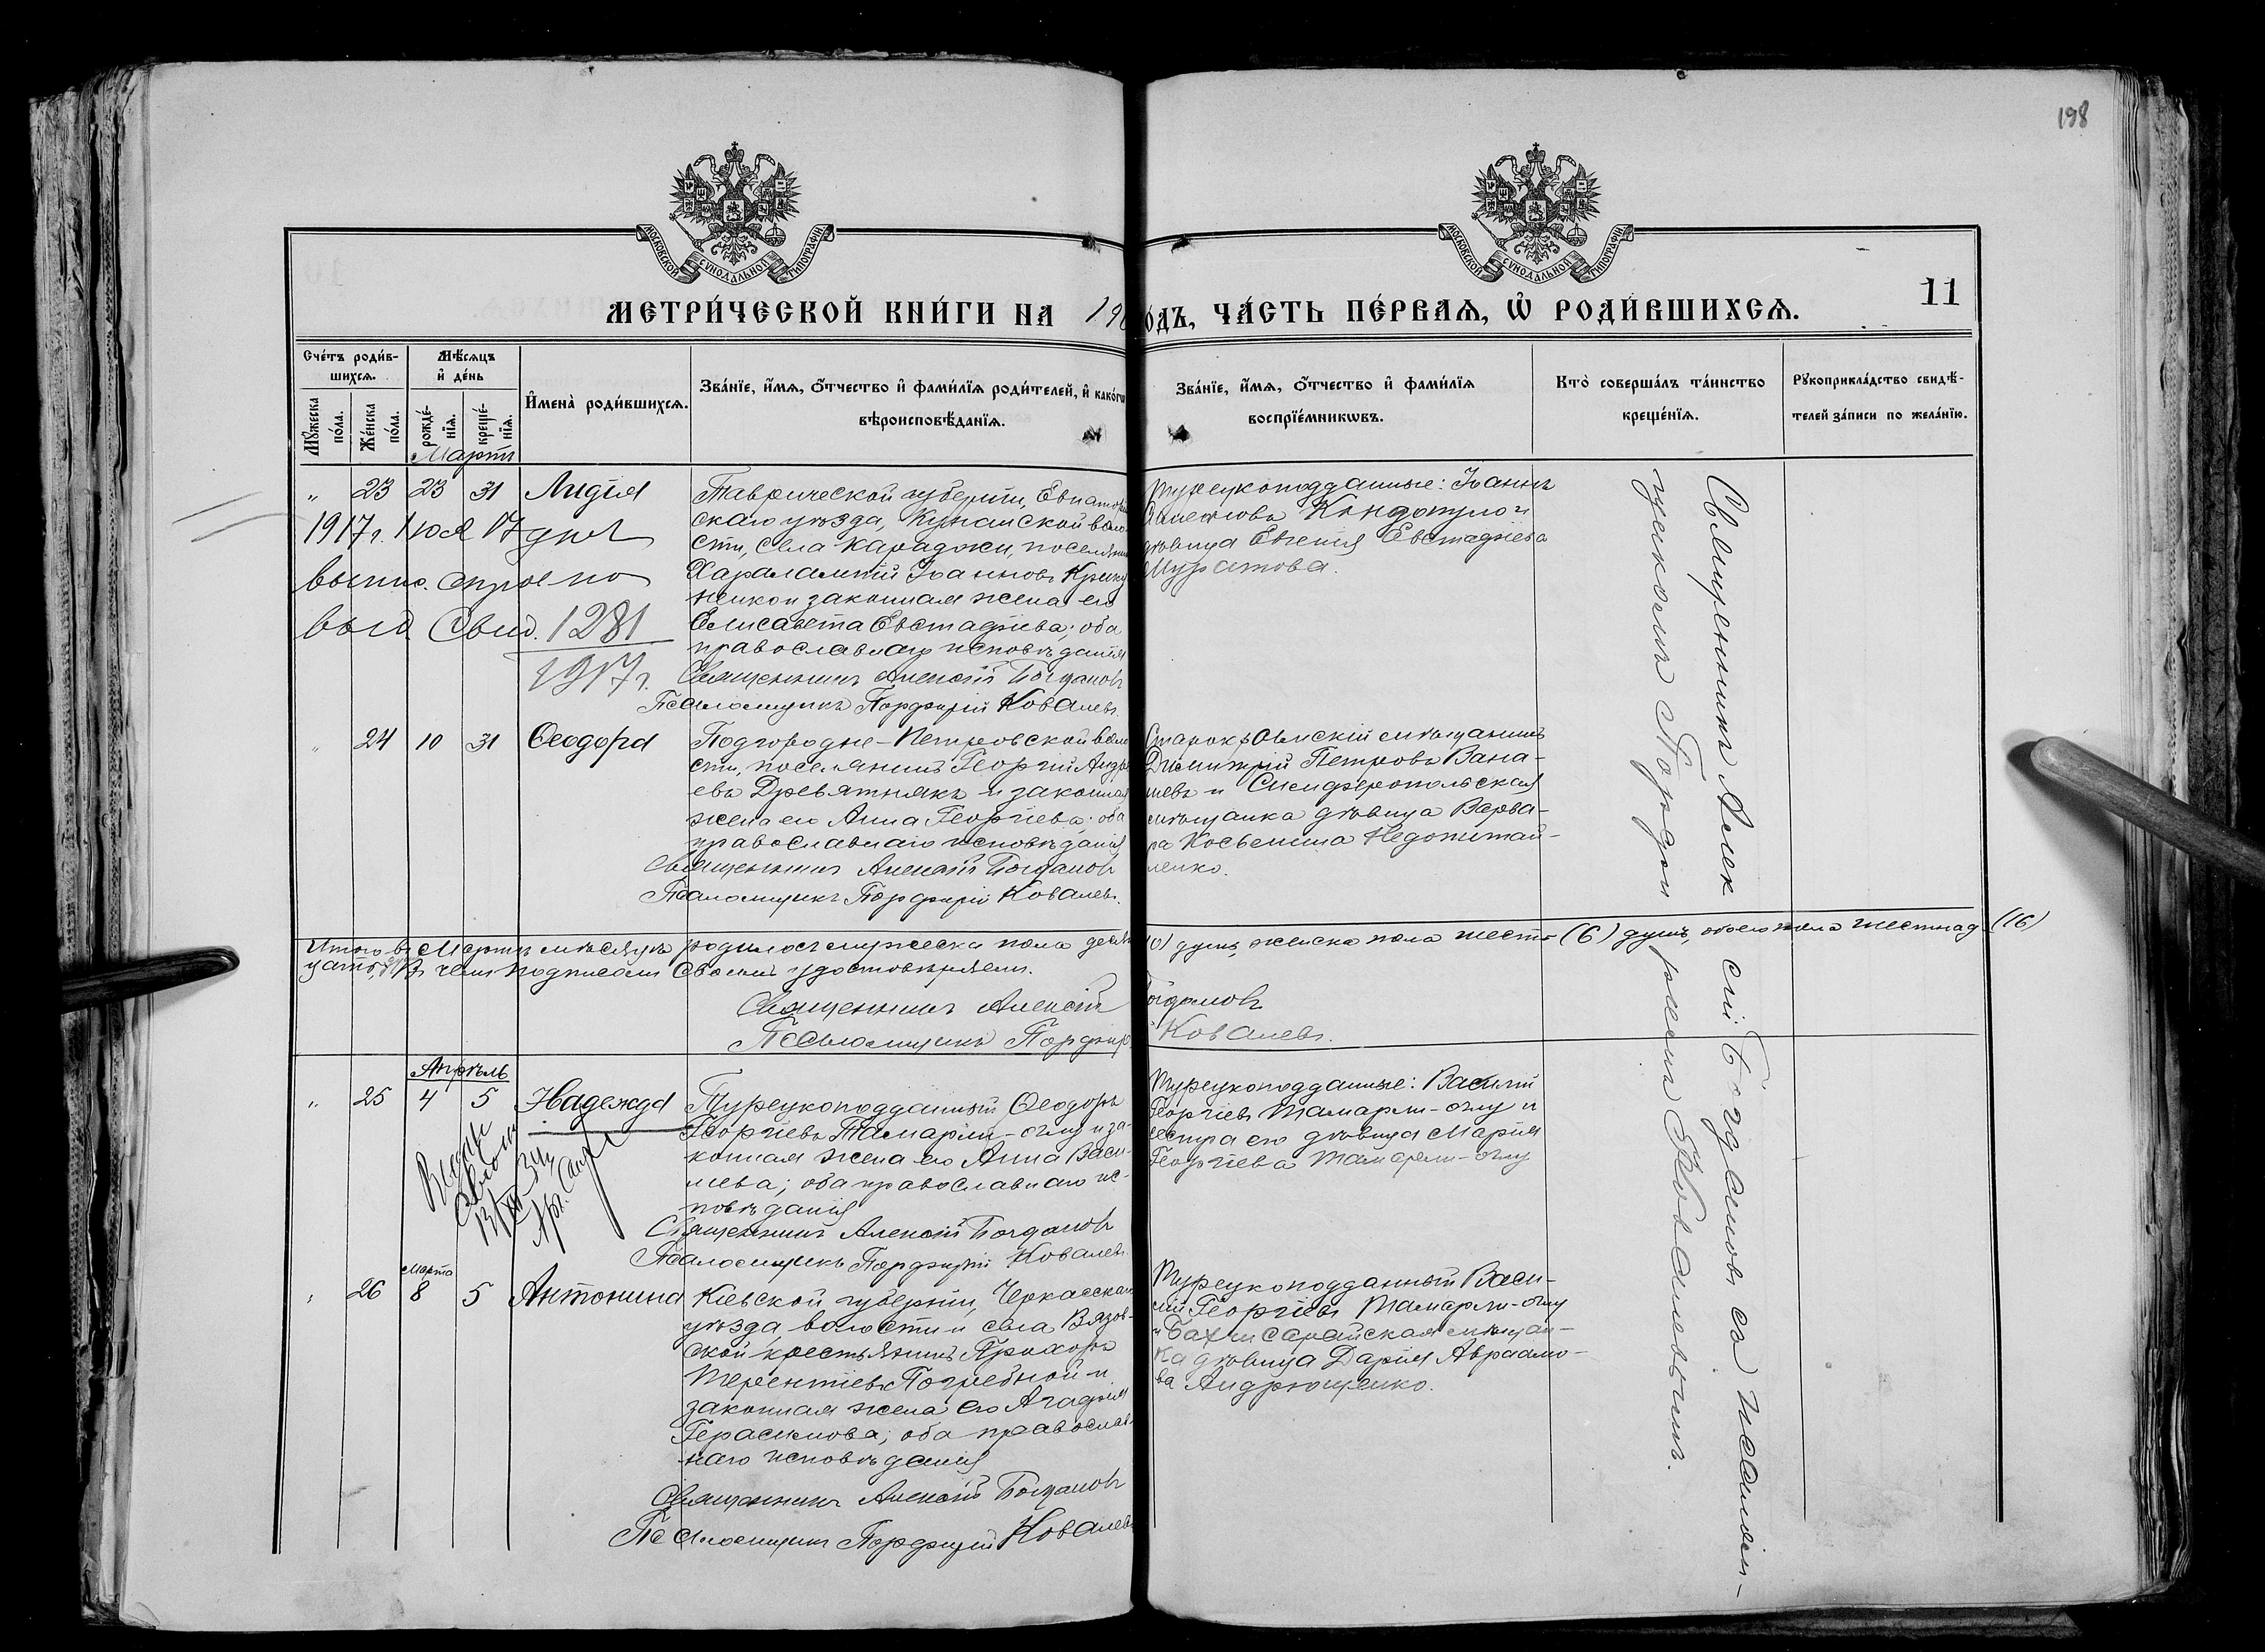 198
МОСКОВСКОЙ СѴНОДАЛЬНОЙ ТИПОГРАФІИ
МОСКОВСКОЙ СѴНОДАЛЬНОЙ ТИПОГРАФІИ
МЕТРИ́ЧЕСКОЙ КНИ́ГИ НА 19
ОДЪ, ЧА́СТЬ ПЕ́РВАѦ, Ѽ РОДИ́ВШИХСѦ.
11
Сче́тъ роди́в-
шихсѧ.
Мꙋ́жеска по́ла.
Же́нска по́ла.
Мѣ́сѧцъ
и҆ де́нь
рожде́-
нїѧ.
креще́-
нїѧ.
И҆мена̀ роди́вшихсѧ.
Зва́нїе, и҆́мѧ, ѻ҆́тчество и҆ фами́лїѧ роди́телей, и҆ како́гѡ
вѣроисповѣ́данїѧ.
Зва́нїе, и҆́мѧ, ѻ҆́тчество и҆ фами́лїѧ
воспрїе́мникѡвъ.
Кто̀ соверша́лъ та́инство
креще́нїѧ.
Рꙋкоприкла́дство свидѣ́-
телей за́писи по жела́нїю.
Мартъ
" 23 23 31 Лидія
Таврической губерніи, Евпаторій
скаго уѣзда, Кунанской воло
сти, села Караджи, поселянин
Харалампій Іоанновъ
и законная жена его
Елисавета Евстафіева; оба
православнаго исповѣданія
Священникъ Алексій Богданов
Псаломщикъ Порфирій Ковалевъ.
1917 г. Іюля 17 дня
выпис.
выд. Свид. 1281
1917 г.
Турецкоподданные: Іоаннъ
Кондопуло и
дѣвица Евгенія Евстафіева
Муратова.
" 24 10 31 Ѳеодора
Подгородне-Петровской воло
сти, поселянинъ Георгій Андре
евъ Древятнякъ и законная
жена его Анна Георгіева; оба
православнаго исповѣданія
Священникъ Алексій Богданов
Псаломщикъ Порфирій Ковалевъ.
Старокрымскій мѣщанинъ
Димитрій Петровъ Вана-
шевъ и Симферопольская
мѣщанка дѣвица Варва-
ра Косьмина Недожитай-
ленко.
Итого въ Мартѣ мѣсяцѣ родилось мужеска пола десят 10) душъ, женска пола шесть (6) душъ, обоего пола шестнад (16)
цать, Въ чемъ подписомъ своимъ удостовѣряемъ.
Священникъ Алексій
огдановъ
Псаломщикъ Порфир
Ковалевъ.
Апрѣль
" 25 4 5 Надежда
Турецкоподданный Ѳеодоръ
Георгіевъ Тамарли-оглу и за-
конная жена его Анна Васи-
льева; оба православнаго ис-
повѣданія
Священникъ Алексій Богданов
Псаломщикъ Порфирій Ковалевъ
Турецкоподданные: Василій
Георгіевъ Тамарли-оглу и
сестра его дѣвица Марія
Георгіева Тамарли-оглу
Марта
" 26 8 5 Антонина
Кіевской губерніи, Черкасскаго
уѣзда, волости и села Вязов-
ской крестьянинъ Прохоръ
Терентіевъ Погребной и
законная жена его Агафія
Герасимова; оба православ
наго исповѣданія
Священникъ Алексій Богданов
Псаломщикъ Порфирій Ковалевъ
Турецкоподданный Васи-
лій Георгіевъ Тамарли-оглу
и Бахчисарайская мѣщан-
ка дѣвица Дарія Авраамо-
ва Андрющенко.
Священникъ Алексій Богдановъ съ псалом-
щикомъ Порфиріемъ Ковалевымъ.